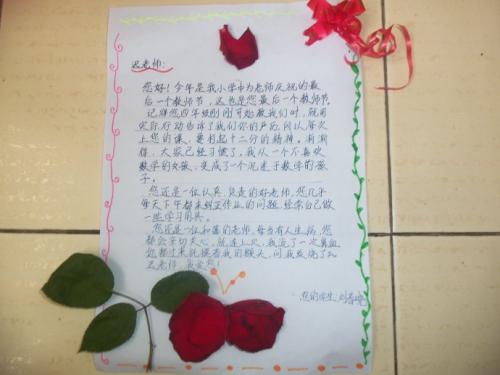 迟老师:
您好!今年是我小学中为老师庆祝的最
后一个教师节,这也是您最后一个教师节。
记得您四年级刚刚开始教我们时,就用
实际行动告诉了我们你的严厉,所以每次
上您的课,要打起十二分的精神。渐渐
得,大家已经习惯了,我从一个不喜欢
数学的女孩,变成了一个沉迷于数学的孩
子。
您还是一位认真负责的好老师,您几乎
每天下午都来纠正作业的问题,经常自己做
一些学习用具。
您还是一位和蔼的老师,每当有人生病,您
都会亲切关心,就连上次,我流了一次鼻血
您都过来抚摸着我的额头,问我发烧了吗
迟老师 我爱您!
您的学生:刘